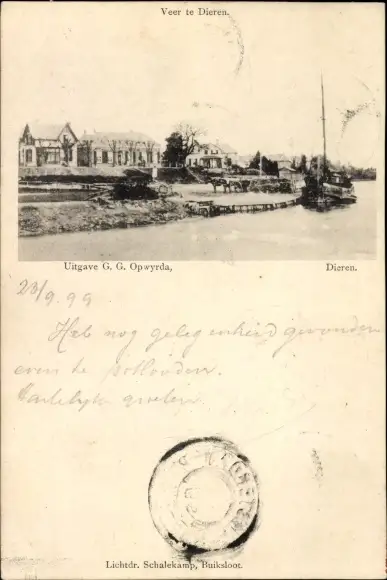 Veer te Dieren.
Uitgave G. G. Opwyrda,
Dieren.
23/9.99
Heb nog gelegenheid gevonden
even te
Hartelijk groeten
Lichtdr. Schalekamp, Buiksloot.